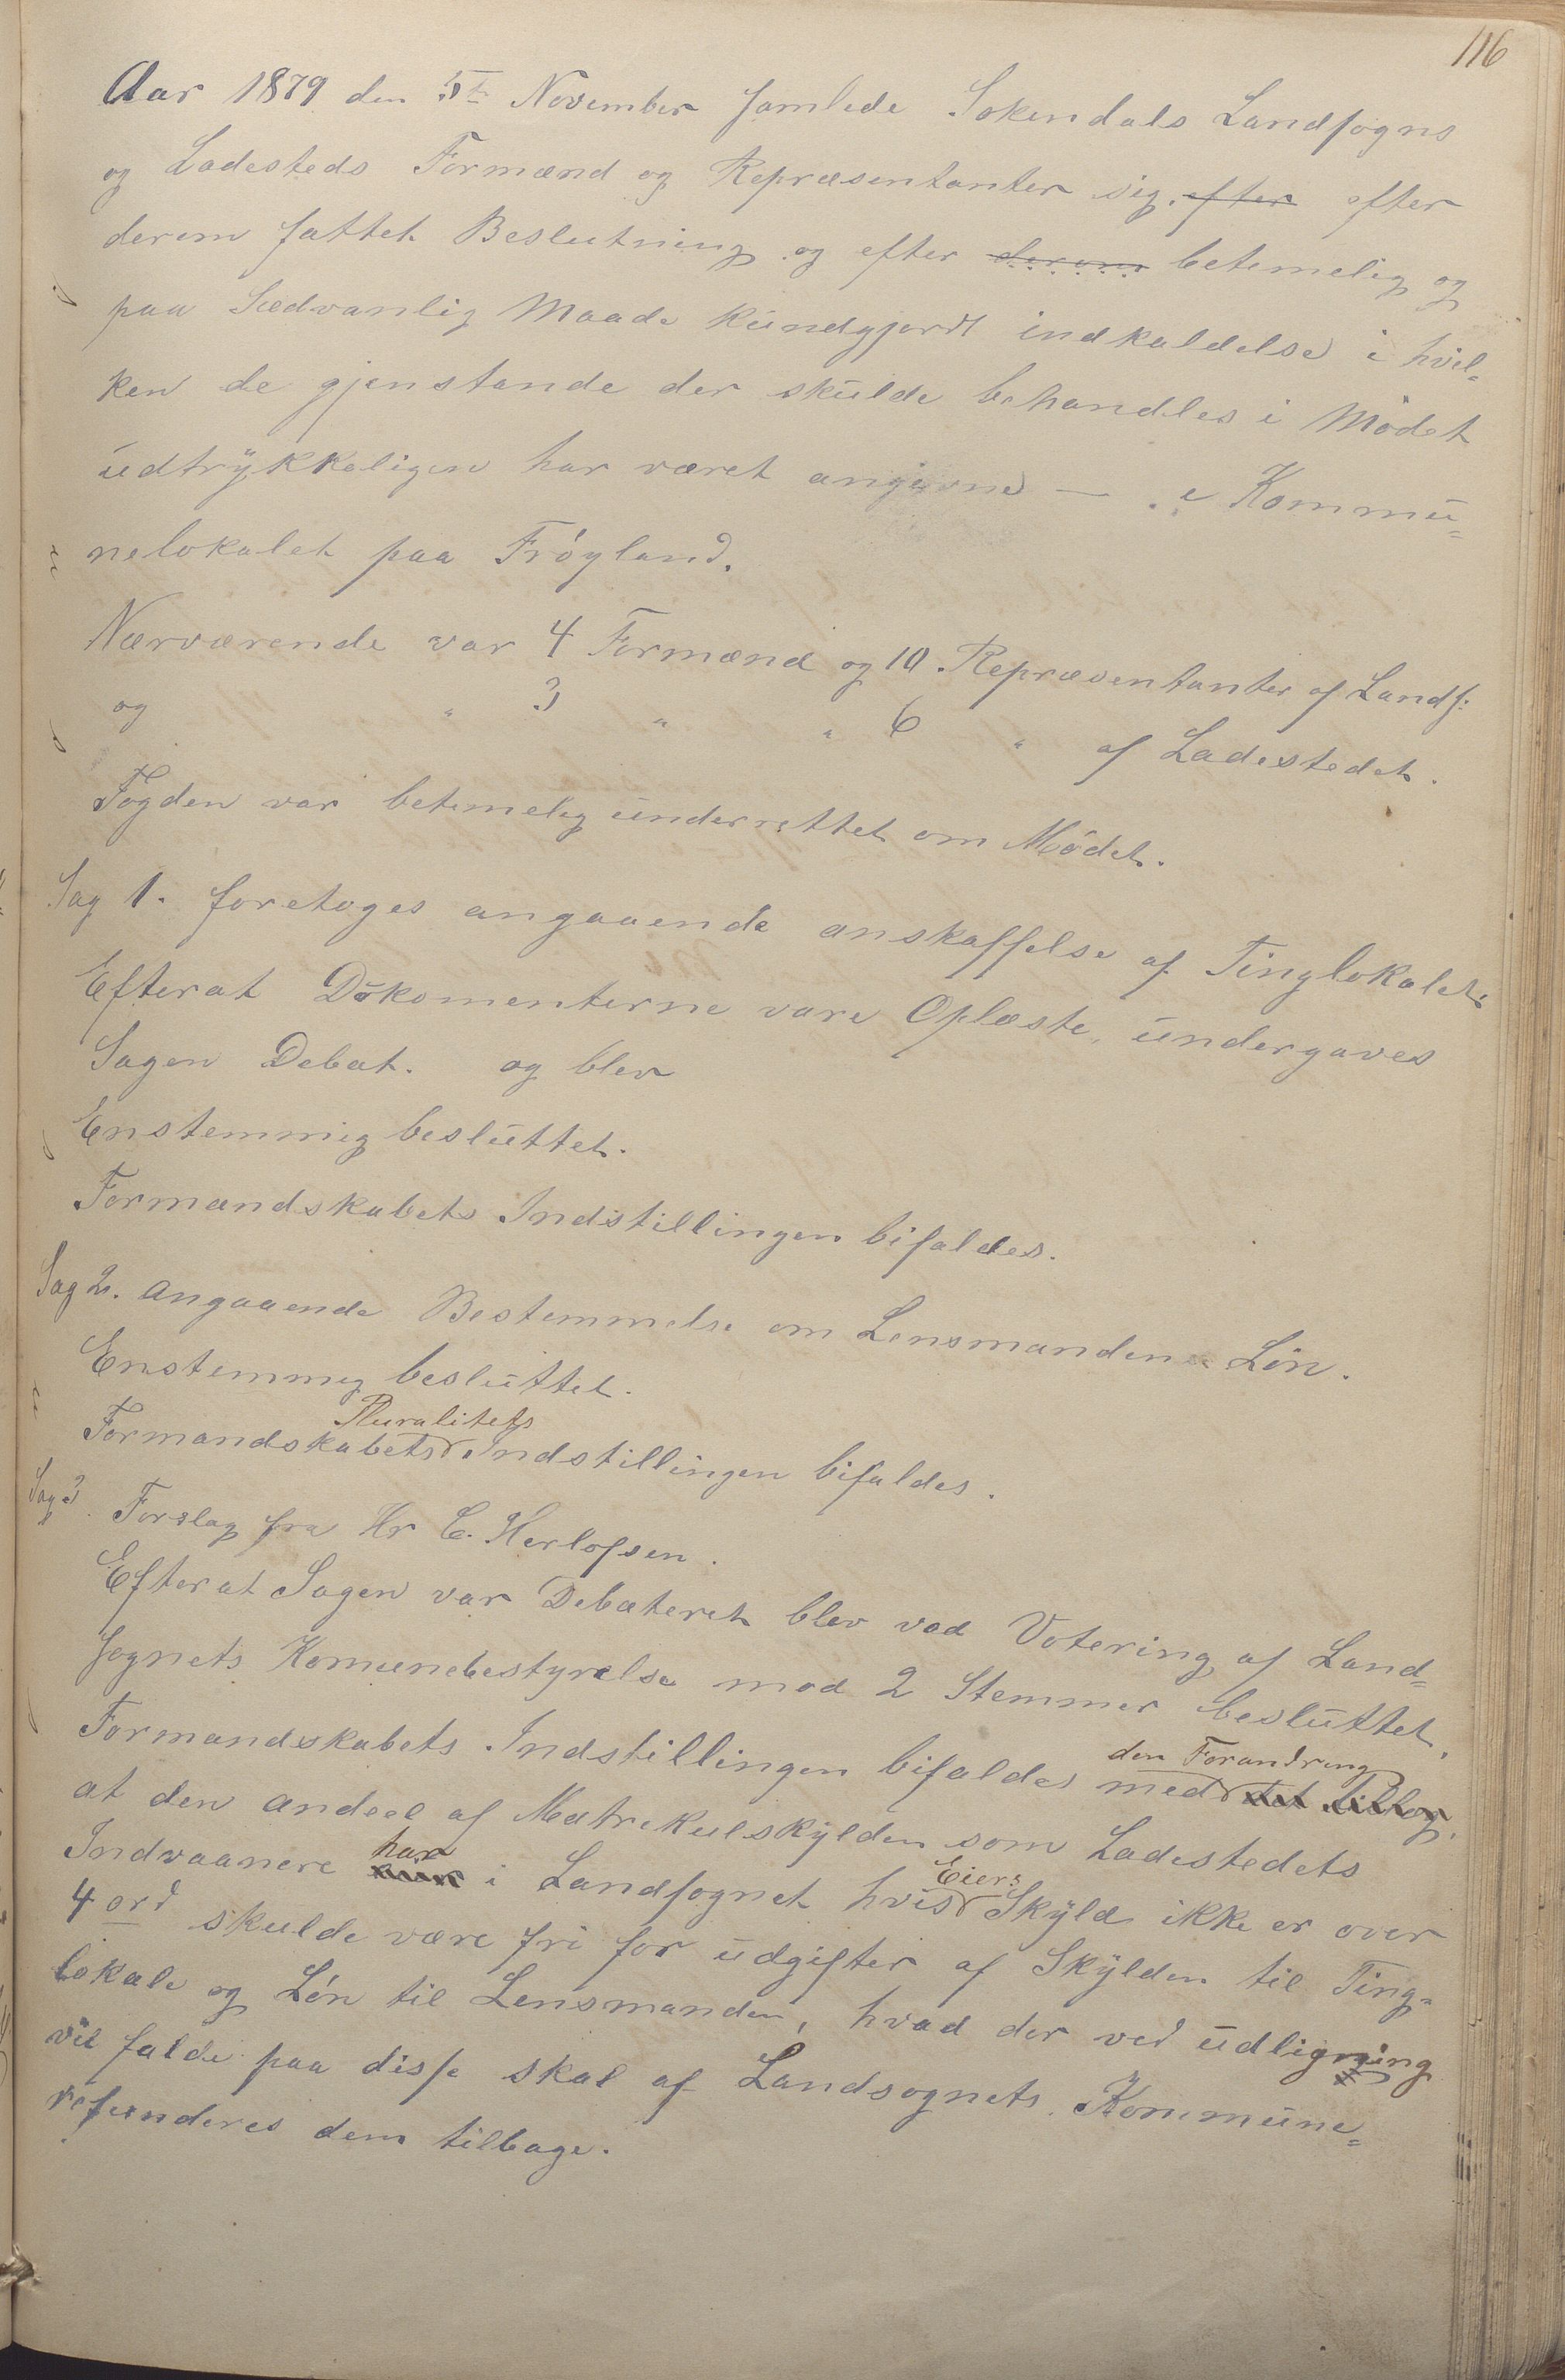 116
Aar 1879 den 5te November samlede Sokendals Landsogns
og Ladesteds Formænd og Repræsentanter sig. efter efter
derom fattet Beslutning og efter derom betimelig og
paa Sædvanlig Maade kundgjordt indkaldelse i hvil=
ken de gjenstande der skulde behandles i Mødet
udtrykkeligen har været angivne — i Kommu=
nelokalet paa Frøyland.
Nærværende var 4 Formænd og 10 Repræsentanter af Lands:
og " 3 " " 6 " af Ladestedet.
Fogden var betimelig underrettet om Mødet.
Sag 1. foretoges angaaende anskaffelse af Tinglokalet:
Efterat Dokomenterne vare Oplæste, undergaves
Sagen Debat. og blev
Enstemmig besluttet.
Formandskabets Indstillingen bifaldes.
Sag 2. angaaende Bestemmelse om Lensmandens Løn.
Enstemmig besluttet.
Pluralitets
Formandskabets Indstillingen bifaldes.
Sag 3. Forslag fra Hr C. Herlofsen.
Efterat Sagen var Debateret blev ved Votering af Land=
sognets Komunebestyrelse mod 2 Stemmer besluttet,
den Forandring
Formandskabets Indstillingen bifaldes med det tillæg,
at den andeel af Matrekulskylden som Ladestedets
har Eiers
Indvaanere i Landsognet hvis Skyld ikke er over
4 ord skulde være fri for udgifter af Skylden til Ting=
lokale og Løn til Lensmanden, hvad der ved udligning
vil falde paa disse skal af Landsognets Kommune=
refunderes dem tilbage.